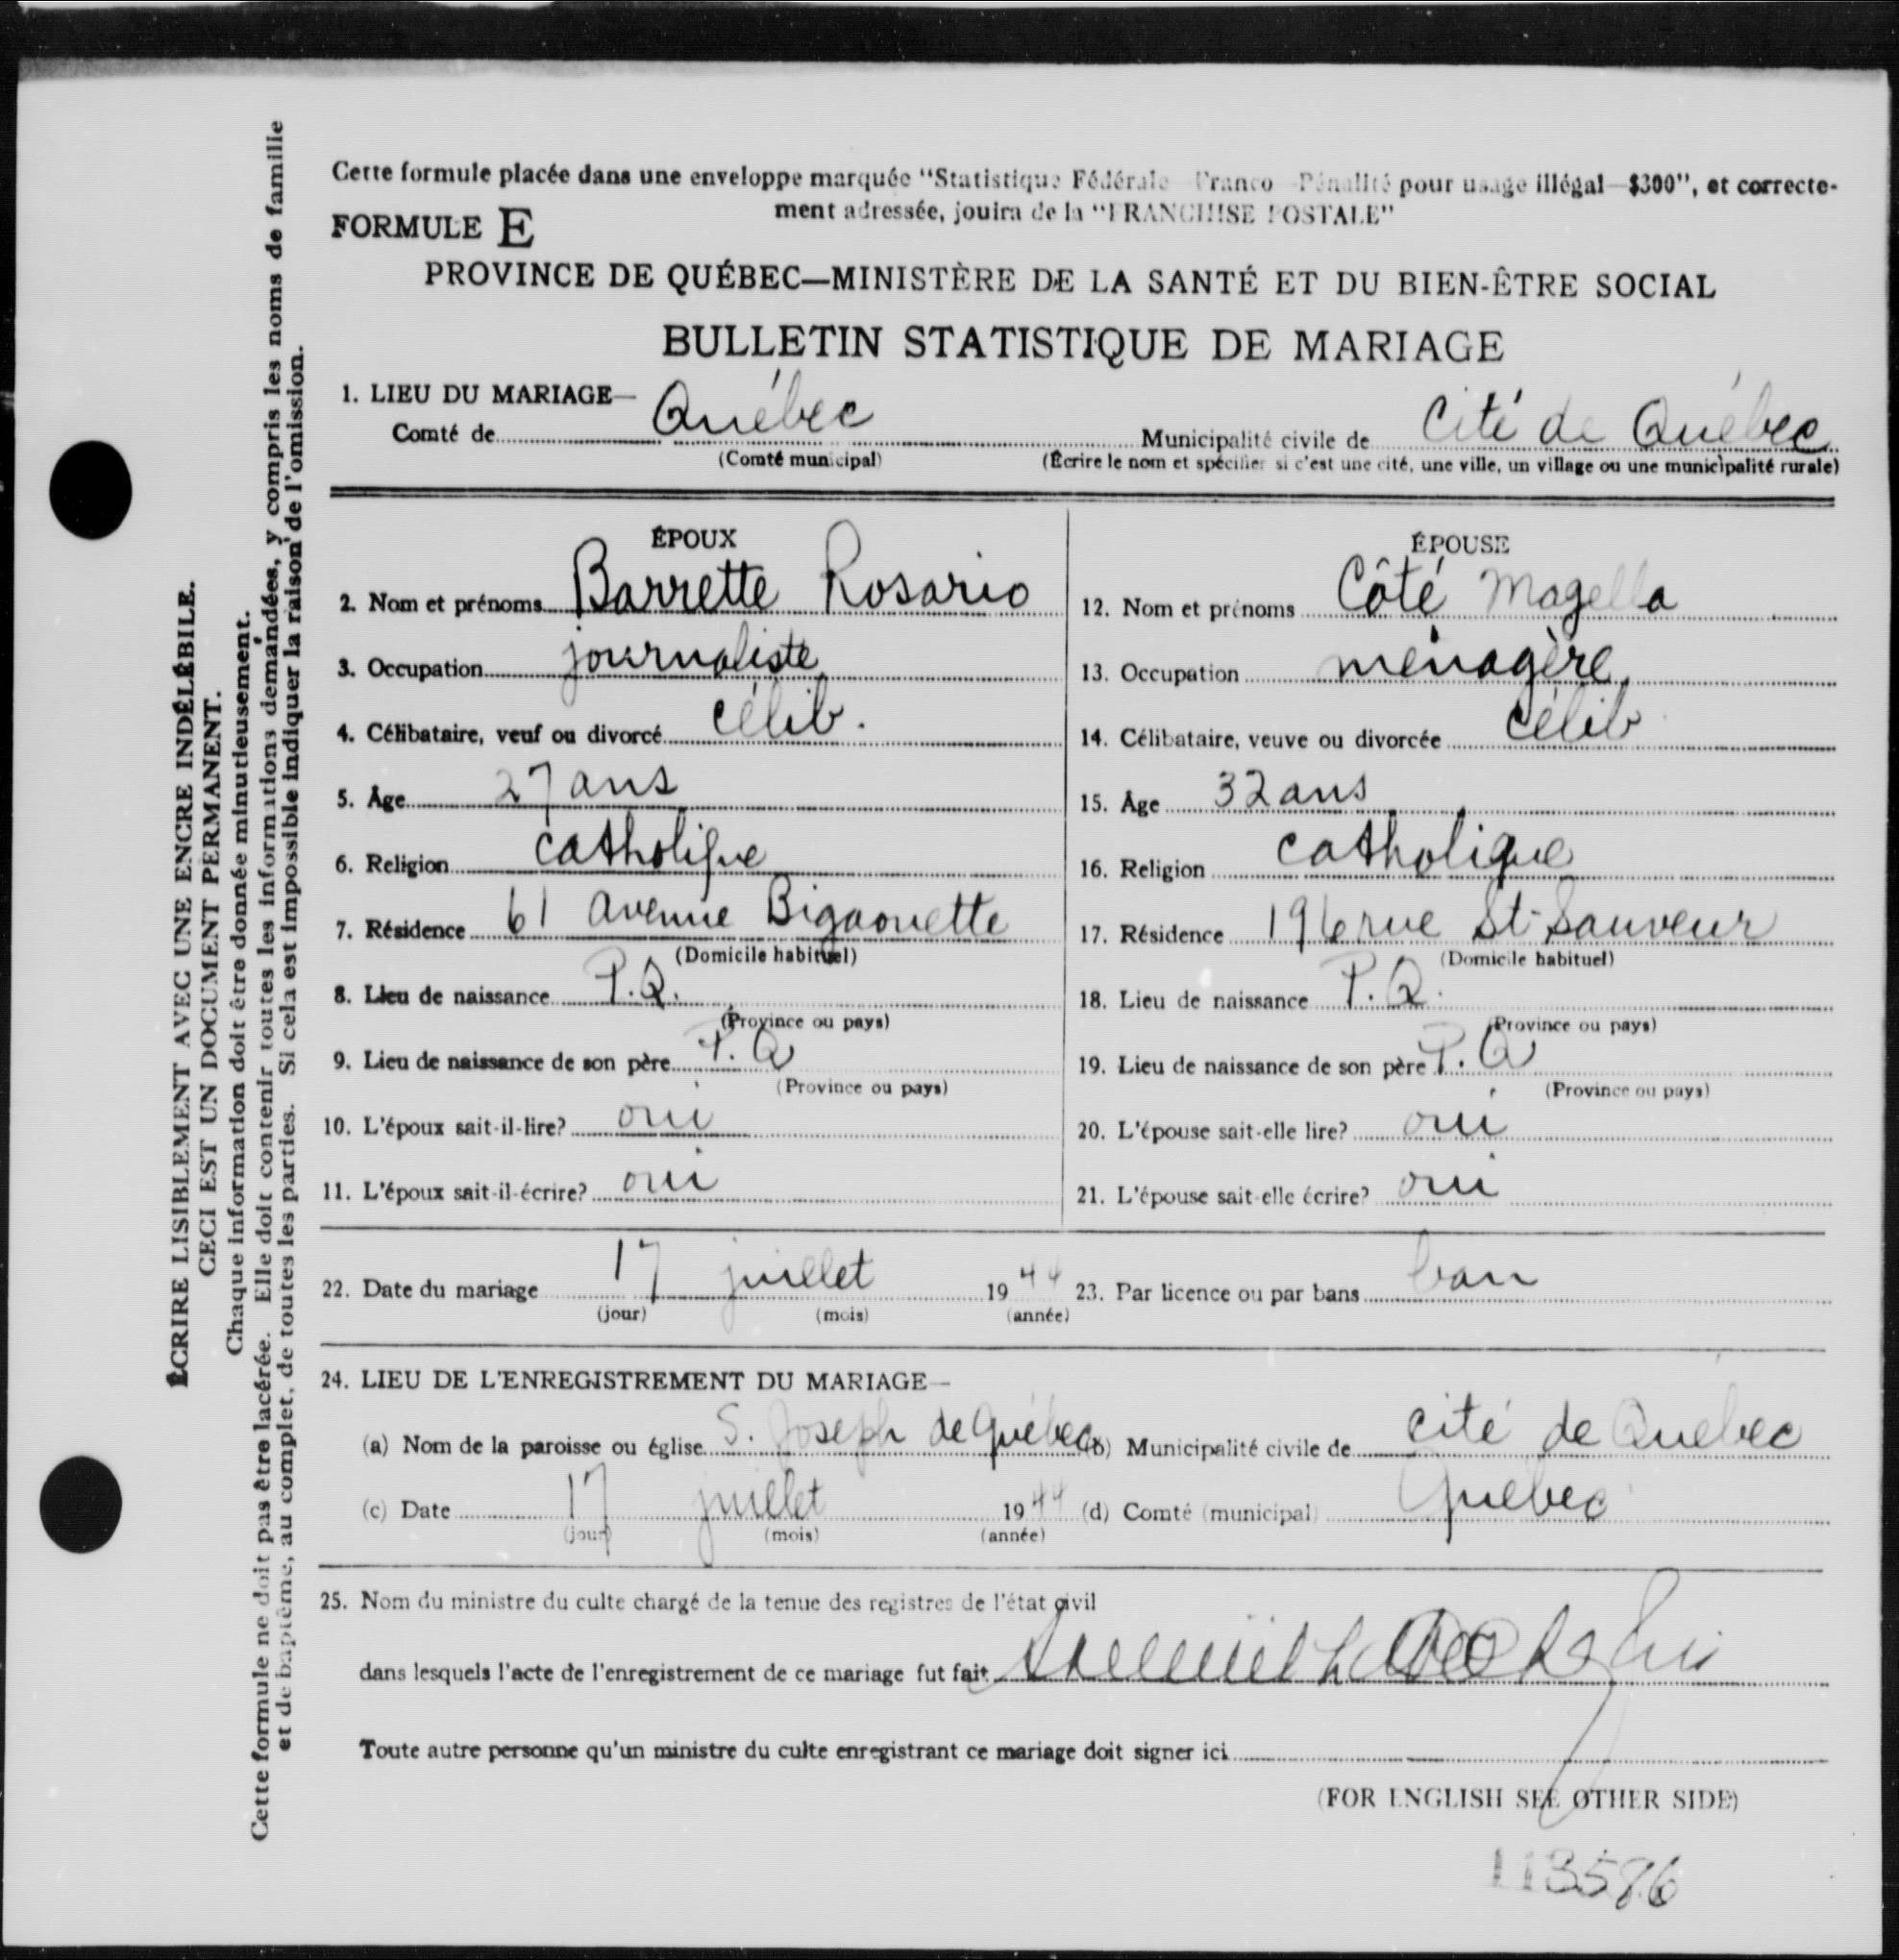 Cette formule placée dans une enveloppe marquée "Statistique Fédérale Franco Pénalité pour usage illégal—$300", et correcte-
ment adressée, jouira de la "FRANCHISE POSTALE"
FORMULE E
PROVINCE DE QUÉBEC—MINISTÈRE DE LA SANTÉ ET DU BIEN-ÊTRE SOCIAL
BULLETIN STATISTIQUE DE MARIAGE
1. LIEU DU MARIAGE—
Comté de Québec Municipalité civile de Cité de Québec
(Comté municipal) (Écrire le nom et spécifier si c'est une cité, une ville, un village ou une municipalité rurale)
ÉPOUX
2. Nom et prénoms Barrette Rosario
3. Occupation journaliste
4. Célibataire, veuf ou divorcé célib.
5. Âge 27 ans
6. Religion catholique
7. Résidence 61 Avenue Bigaouette
(Domicile habituel)
8. Lieu de naissance P.Q.
(Province ou pays)
9. Lieu de naissance de son père P.Q
(Province ou pays)
10. L'époux sait-il-lire? oui
11. L'époux sait-il-écrire? oui
ÉPOUSE
12. Nom et prénoms Côté Magella
13. Occupation ménagère
14. Célibataire, veuve ou divorcée célib
15. Âge 32 ans
16. Religion catholique
17. Résidence 196 rue St-Sauveur
(Domicile habituel)
18. Lieu de naissance P.Q.
(Province ou pays)
19. Lieu de naissance de son père P.Q
(Province ou pays)
20. L'épouse sait-elle lire? oui
21. L'épouse sait-elle écrire? oui
22. Date du mariage 17 juillet 1944 23. Par licence ou par bans ban
(jour) (mois) (année)
24. LIEU DE L'ENREGISTREMENT DU MARIAGE—
(a) Nom de la paroisse ou église S. Joseph de Québec (b) Municipalité civile de cité de Québec
(c) Date 17 juillet 1944 (d) Comté (municipal) Québec
(jour) (mois) (année)
25. Nom du ministre du culte chargé de la tenue des registres de l'état civil
dans lesquels l'acte de l'enregistrement de ce mariage fut fait
Toute autre personne qu'un ministre du culte enregistrant ce mariage doit signer ici
(FOR ENGLISH SEE OTHER SIDE)
113586
ÉCRIRE LISIBLEMENT AVEC UNE ENCRE INDÉLÉBILE.
CECI EST UN DOCUMENT PERMANENT.
Chaque information doit être donnée minutieusement.
Cette formule ne doit pas être lacérée. Elle doit contenir toutes les informations demandées, y compris les noms de famille
et de baptême, au complet, de toutes les parties. Si cela est impossible indiquer la raison de l'omission.